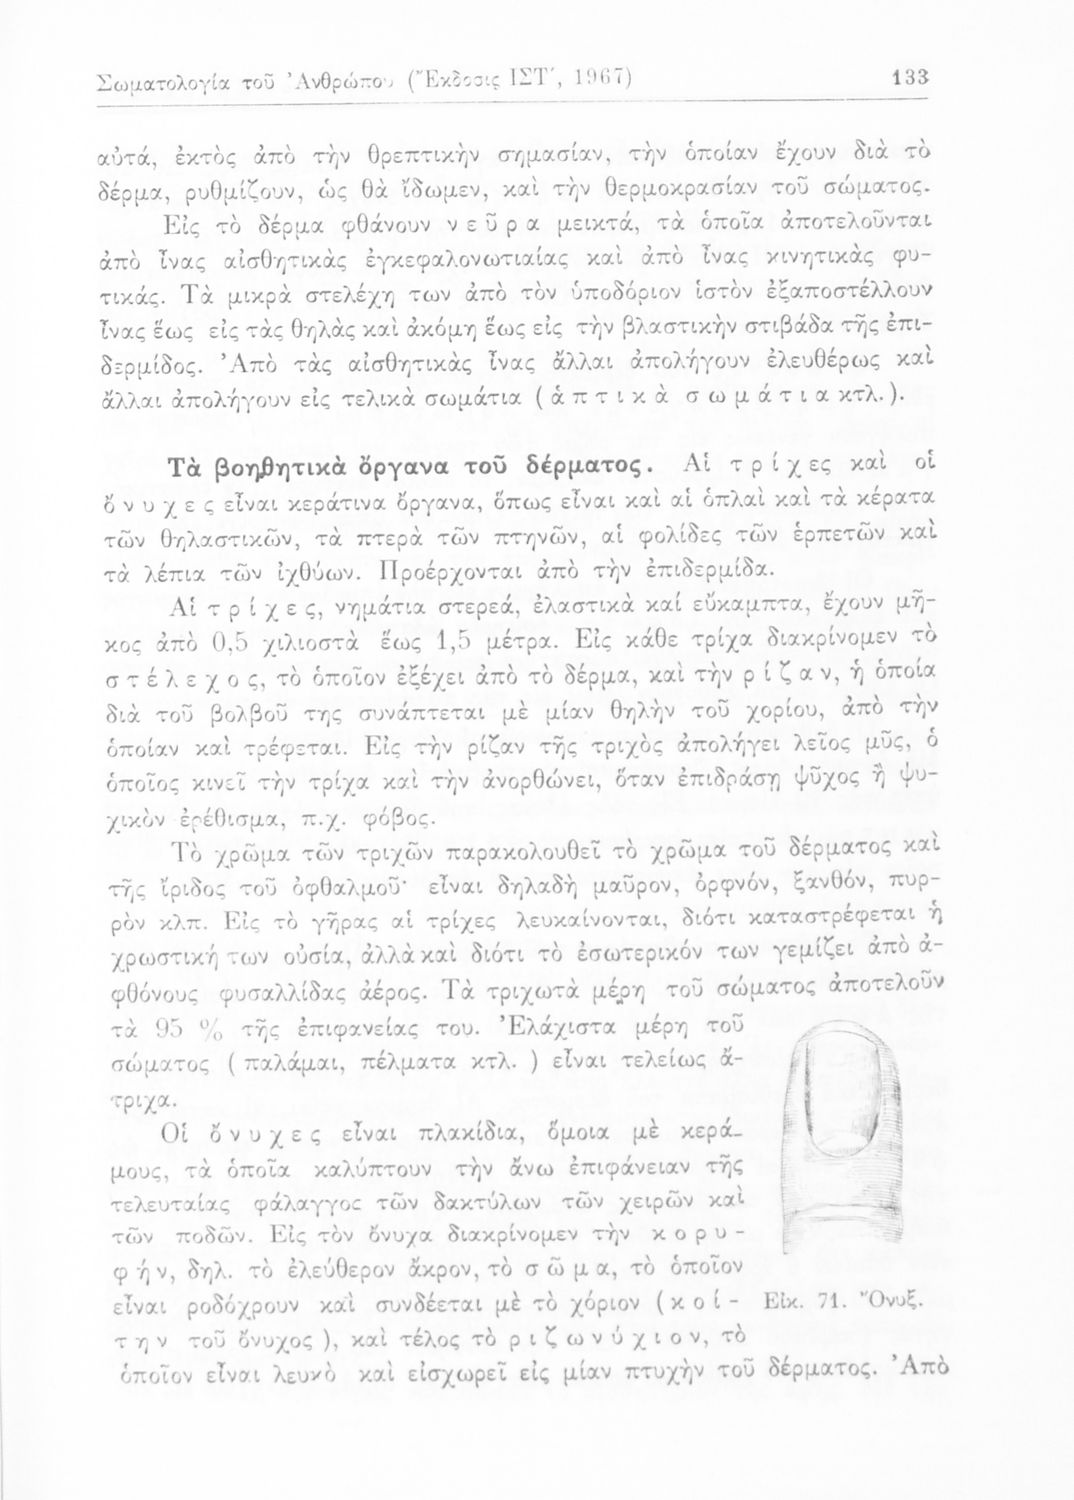 Σωματολογία τοῦ Ἀνθρώπου (Ἔκδοσις ΙΣΤ΄, 1967) 133
αὐτά, ἐκτὸς ἀπὸ τὴν θρεπτικὴν σημασίαν, τὴν ὁποίαν ἔχουν διὰ τὸ
δέρμα, ρυθμίζουν, ὡς θὰ ἴδωμεν, καὶ τὴν θερμοκρασίαν τοῦ σώματος.
Εἰς τὸ δέρμα φθάνουν νεῦρα μεικτά, τὰ ὁποῖα ἀποτελοῦνται
ἀπὸ ἶνας αἰσθητικὰς ἐγκεφαλονωτιαίας καὶ ἀπὸ ἶνας κινητικὰς φυ-
τικάς. Τὰ μικρὰ στελέχη των ἀπὸ τὸν ὑποδόριον ἱστὸν ἐξαποστέλλουν
ἶνας ἕως εἰς τὰς θηλὰς καὶ ἀκόμη ἕως εἰς τὴν βλαστικὴν στιβάδα τῆς ἐπι-
δερμίδος. Ἀπὸ τὰς αἰσθητικὰς ἶνας ἄλλαι ἀπολήγουν ἐλευθέρως καὶ
ἄλλαι ἀπολήγουν εἰς τελικὰ σωμάτια (ἁπτικὰ σωμάτια κτλ.).
Τὰ βοηθητικὰ ὄργανα τοῦ δέρματος. Αἱ τρίχες καὶ οἱ
ὄνυχες εἶναι κεράτινα ὄργανα, ὅπως εἶναι καὶ αἱ ὁπλαὶ καὶ τὰ κέρατα
τῶν θηλαστικῶν, τὰ πτερὰ τῶν πτηνῶν, αἱ φολίδες τῶν ἑρπετῶν καὶ
τὰ λέπια τῶν ἰχθύων. Προέρχονται ἀπὸ τὴν ἐπιδερμίδα.
Αἱ τρίχες, νημάτια στερεά, ἐλαστικὰ καί εὔκαμπτα, ἔχουν μῆ-
κος ἀπὸ 0,5 χιλιοστὰ ἕως 1,5 μέτρα. Εἰς κάθε τρίχα διακρίνομεν τὸ
στέλεχος, τὸ ὁποῖον ἐξέχει ἀπὸ τὸ δέρμα, καὶ τὴν ρίζαν, ἡ ὁποία
διὰ τοῦ βολβοῦ της συνάπτεται μὲ μίαν θηλὴν τοῦ χορίου, ἀπὸ τὴν
ὁποίαν καὶ τρέφεται. Εἰς τὴν ρίζαν τῆς τριχὸς ἀπολήγει λεῖος μῦς, ὁ
ὁποῖος κινεῖ τὴν τρίχα καὶ τὴν ἀνορθώνει, ὅταν ἐπιδράσῃ ψῦχος ἢ ψυ-
χικὸν ἐρέθισμα, π.χ. φόβος.
Τὸ χρῶμα τῶν τριχῶν παρακολουθεῖ τὸ χρῶμα τοῦ δέρματος καὶ
τῆς ἴριδος τοῦ ὀφθαλμοῦ· εἶναι δηλαδὴ μαῦρον, ὀρφνόν, ξανθόν, πυρ-
ρὸν κλπ. Εἰς τὸ γῆρας αἱ τρίχες λευκαίνονται, διότι καταστρέφεται ἡ
χρωστική των οὐσία, ἀλλὰ καὶ διότι τὸ ἐσωτερικόν των γεμίζει ἀπὸ ἀ-
φθόνους φυσαλλίδας ἀέρος. Τὰ τριχωτὰ μέρη τοῦ σώματος ἀποτελοῦν
τὰ 95 % τῆς ἐπιφανείας του. Ἐλάχιστα μέρη τοῦ
σώματος (παλάμαι, πέλματα κτλ.) εἶναι τελείως ἄ-
τριχα.
Οἱ ὄνυχες εἶναι πλακίδια, ὅμοια μὲ κερά-
μους, τὰ ὁποῖα καλύπτουν τὴν ἄνω ἐπιφάνειαν τῆς
τελευταίας φάλαγγος τῶν δακτύλων τῶν χειρῶν καὶ
τῶν ποδῶν. Εἰς τὸν ὄνυχα διακρίνομεν τὴν κορυ-
φήν, δηλ. τὸ ἐλεύθερον ἄκρον, τὸ σῶμα, τὸ ὁποῖον
εἶναι ροδόχρουν καὶ συνδέεται μὲ τὸ χόριον (κοί-
την τοῦ ὄνυχος), καὶ τέλος τὸ ριζωνύχιον, τὸ
Εἰκ. 71. Ὄνυξ.
ὁποῖον εἶναι λευκὸ καὶ εἰσχωρεῖ εἰς μίαν πτυχὴν τοῦ δέρματος. Ἀπὸ